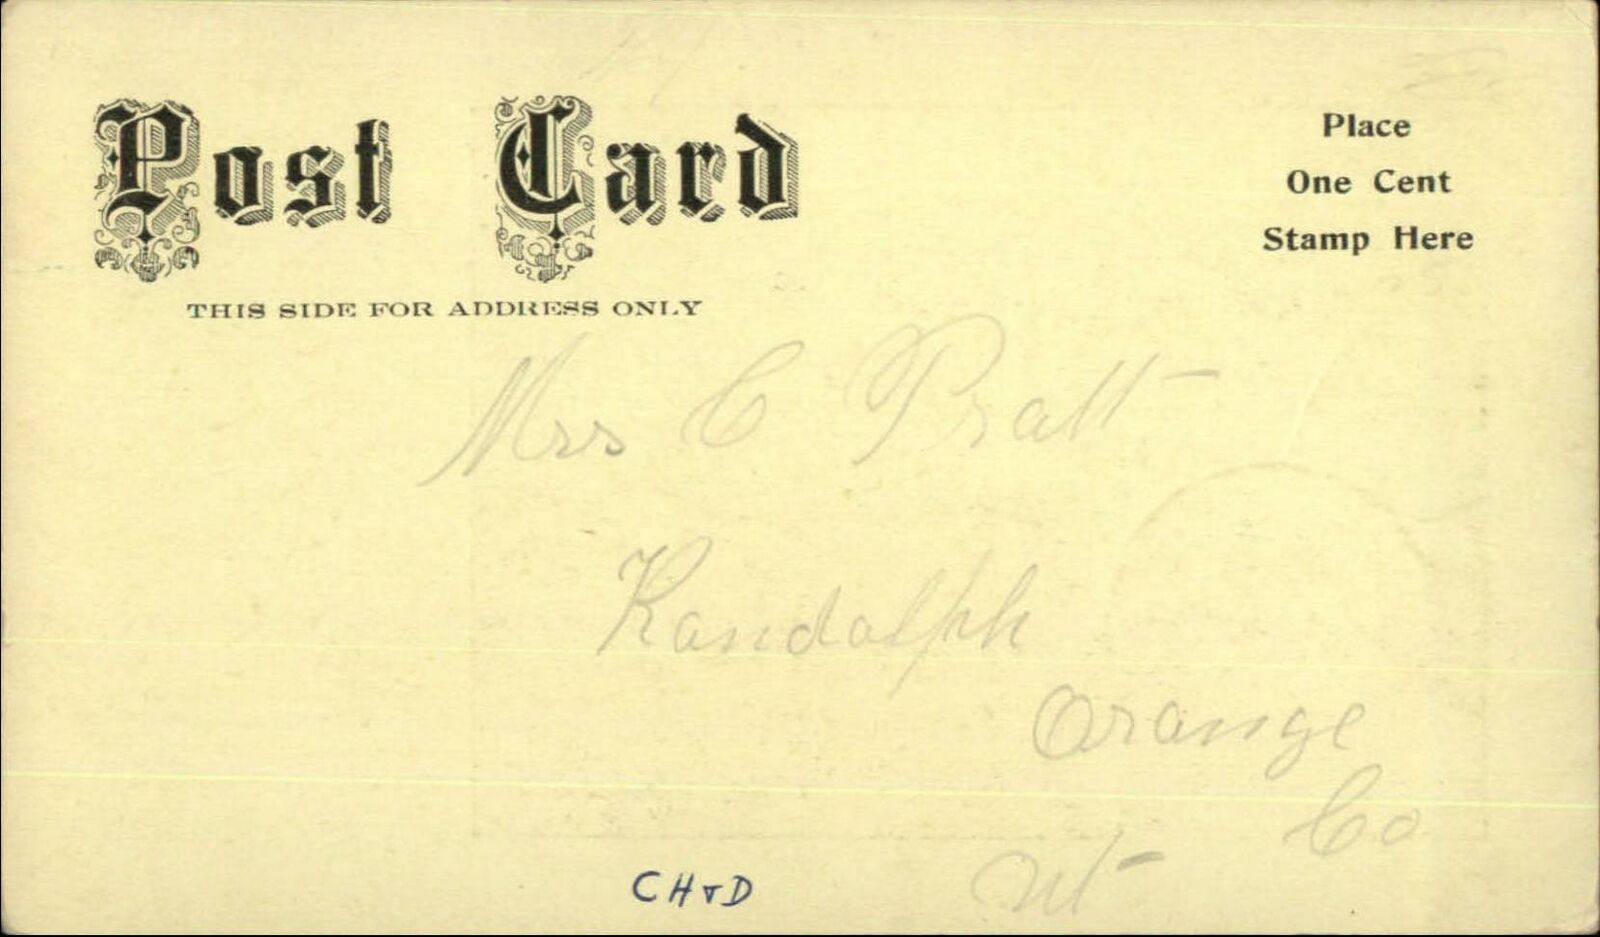 Post Card
THIS SIDE FOR ADDRESS ONLY
Place
One Cent
Stamp Here
Mrs C Pratt
Randolph
Orange
Co
Vt
CH&D